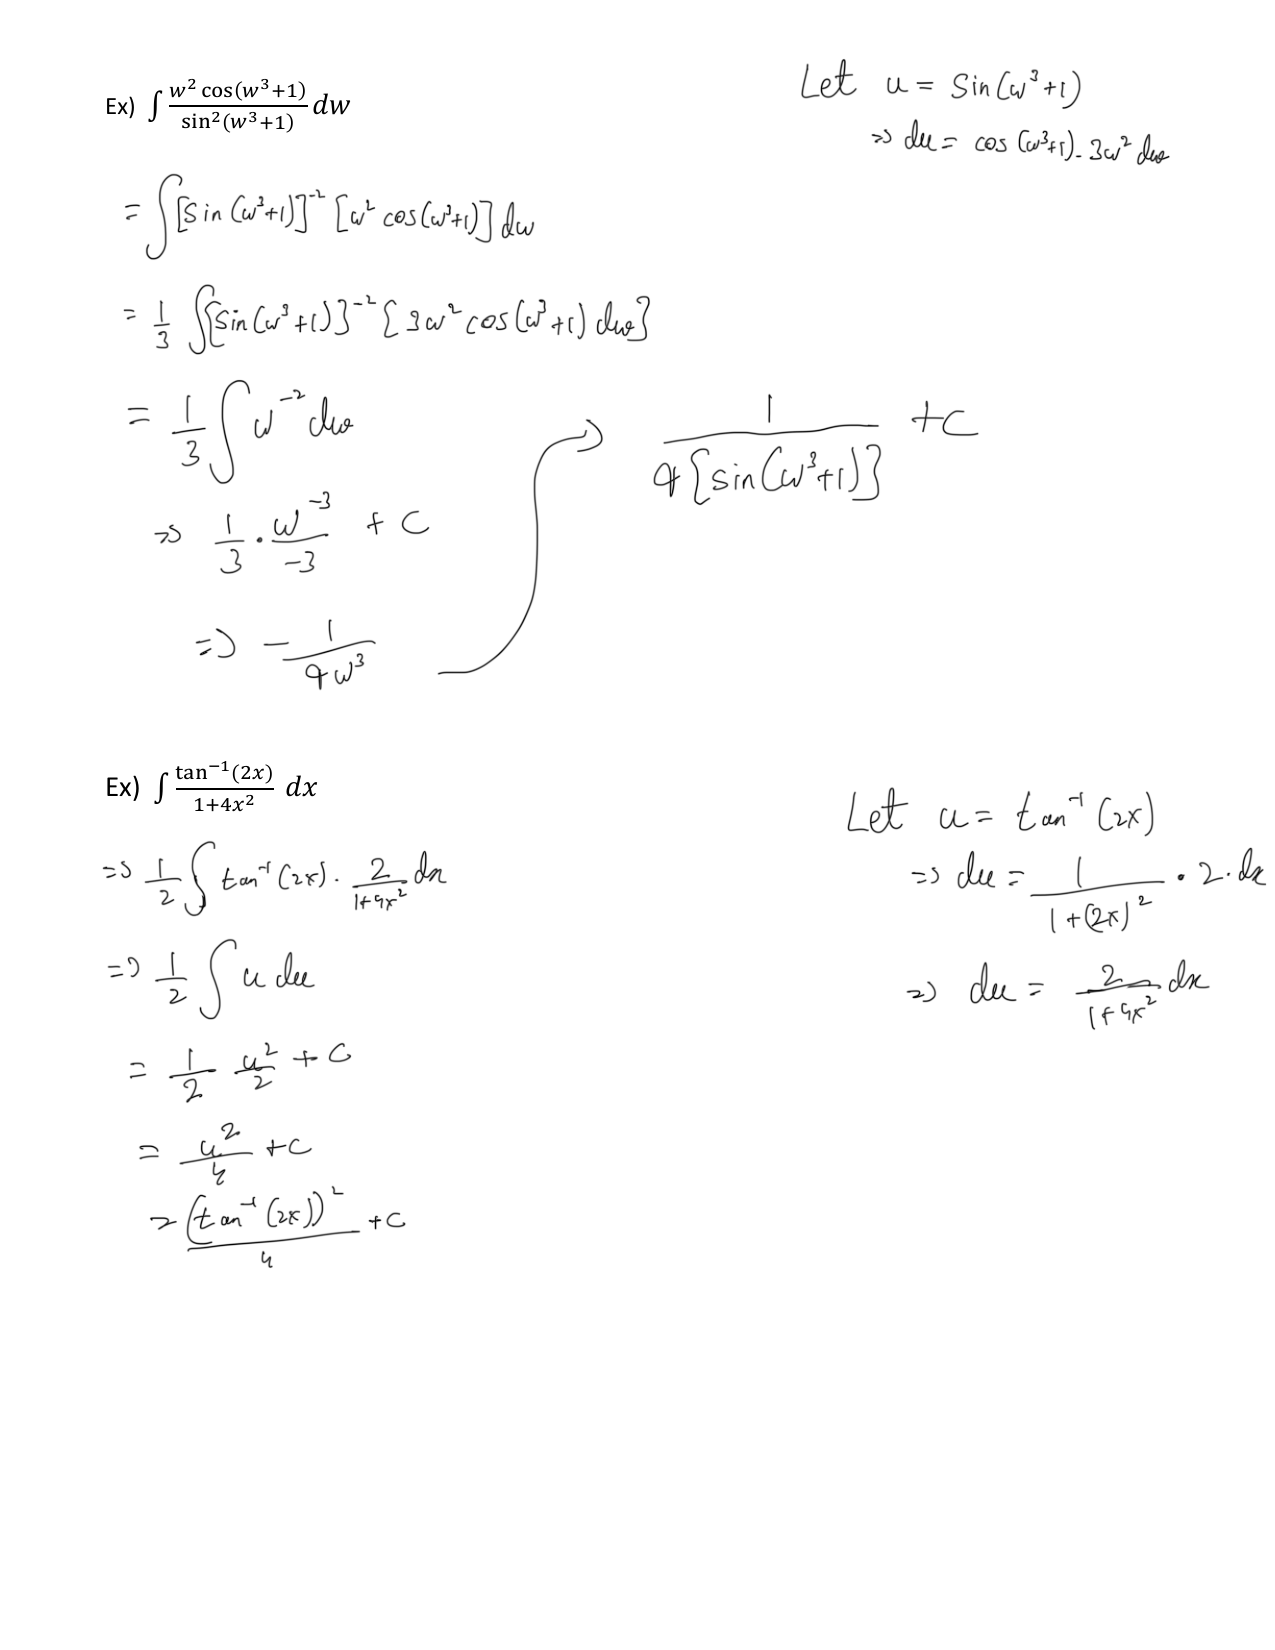 Ex) ∫ w² cos(w³+1) / sin²(w³+1) dw
Let u = Sin(w³+1)
⇒ du = cos (w³+1) . 3w² dw
= ∫ [sin (w³+1)]⁻² [w² cos(w³+1)] dw
= 1/3 ∫ {sin(w³+1)}⁻² { 3w² cos(w³+1) dw}
= 1/3 ∫ w⁻² dw
⇒ 1/3 · w⁻³/-3 + C
⇒ - 1/9w³
→ 1 / 9{sin(w³+1)} + C
Ex) ∫ tan⁻¹(2x) / 1+4x² dx
Let u = tan⁻¹ (2x)
⇒ du = 1 / 1+(2x)² · 2 . dx
⇒ du = 2 / 1+4x² dx
⇒ 1/2 ∫ tan⁻¹ (2x) . 2 / 1+4x² dx
⇒ 1/2 ∫ u du
= 1/2 u²/2 + C
= u²/4 + C
= (tan⁻¹ (2x))² / 4 + C